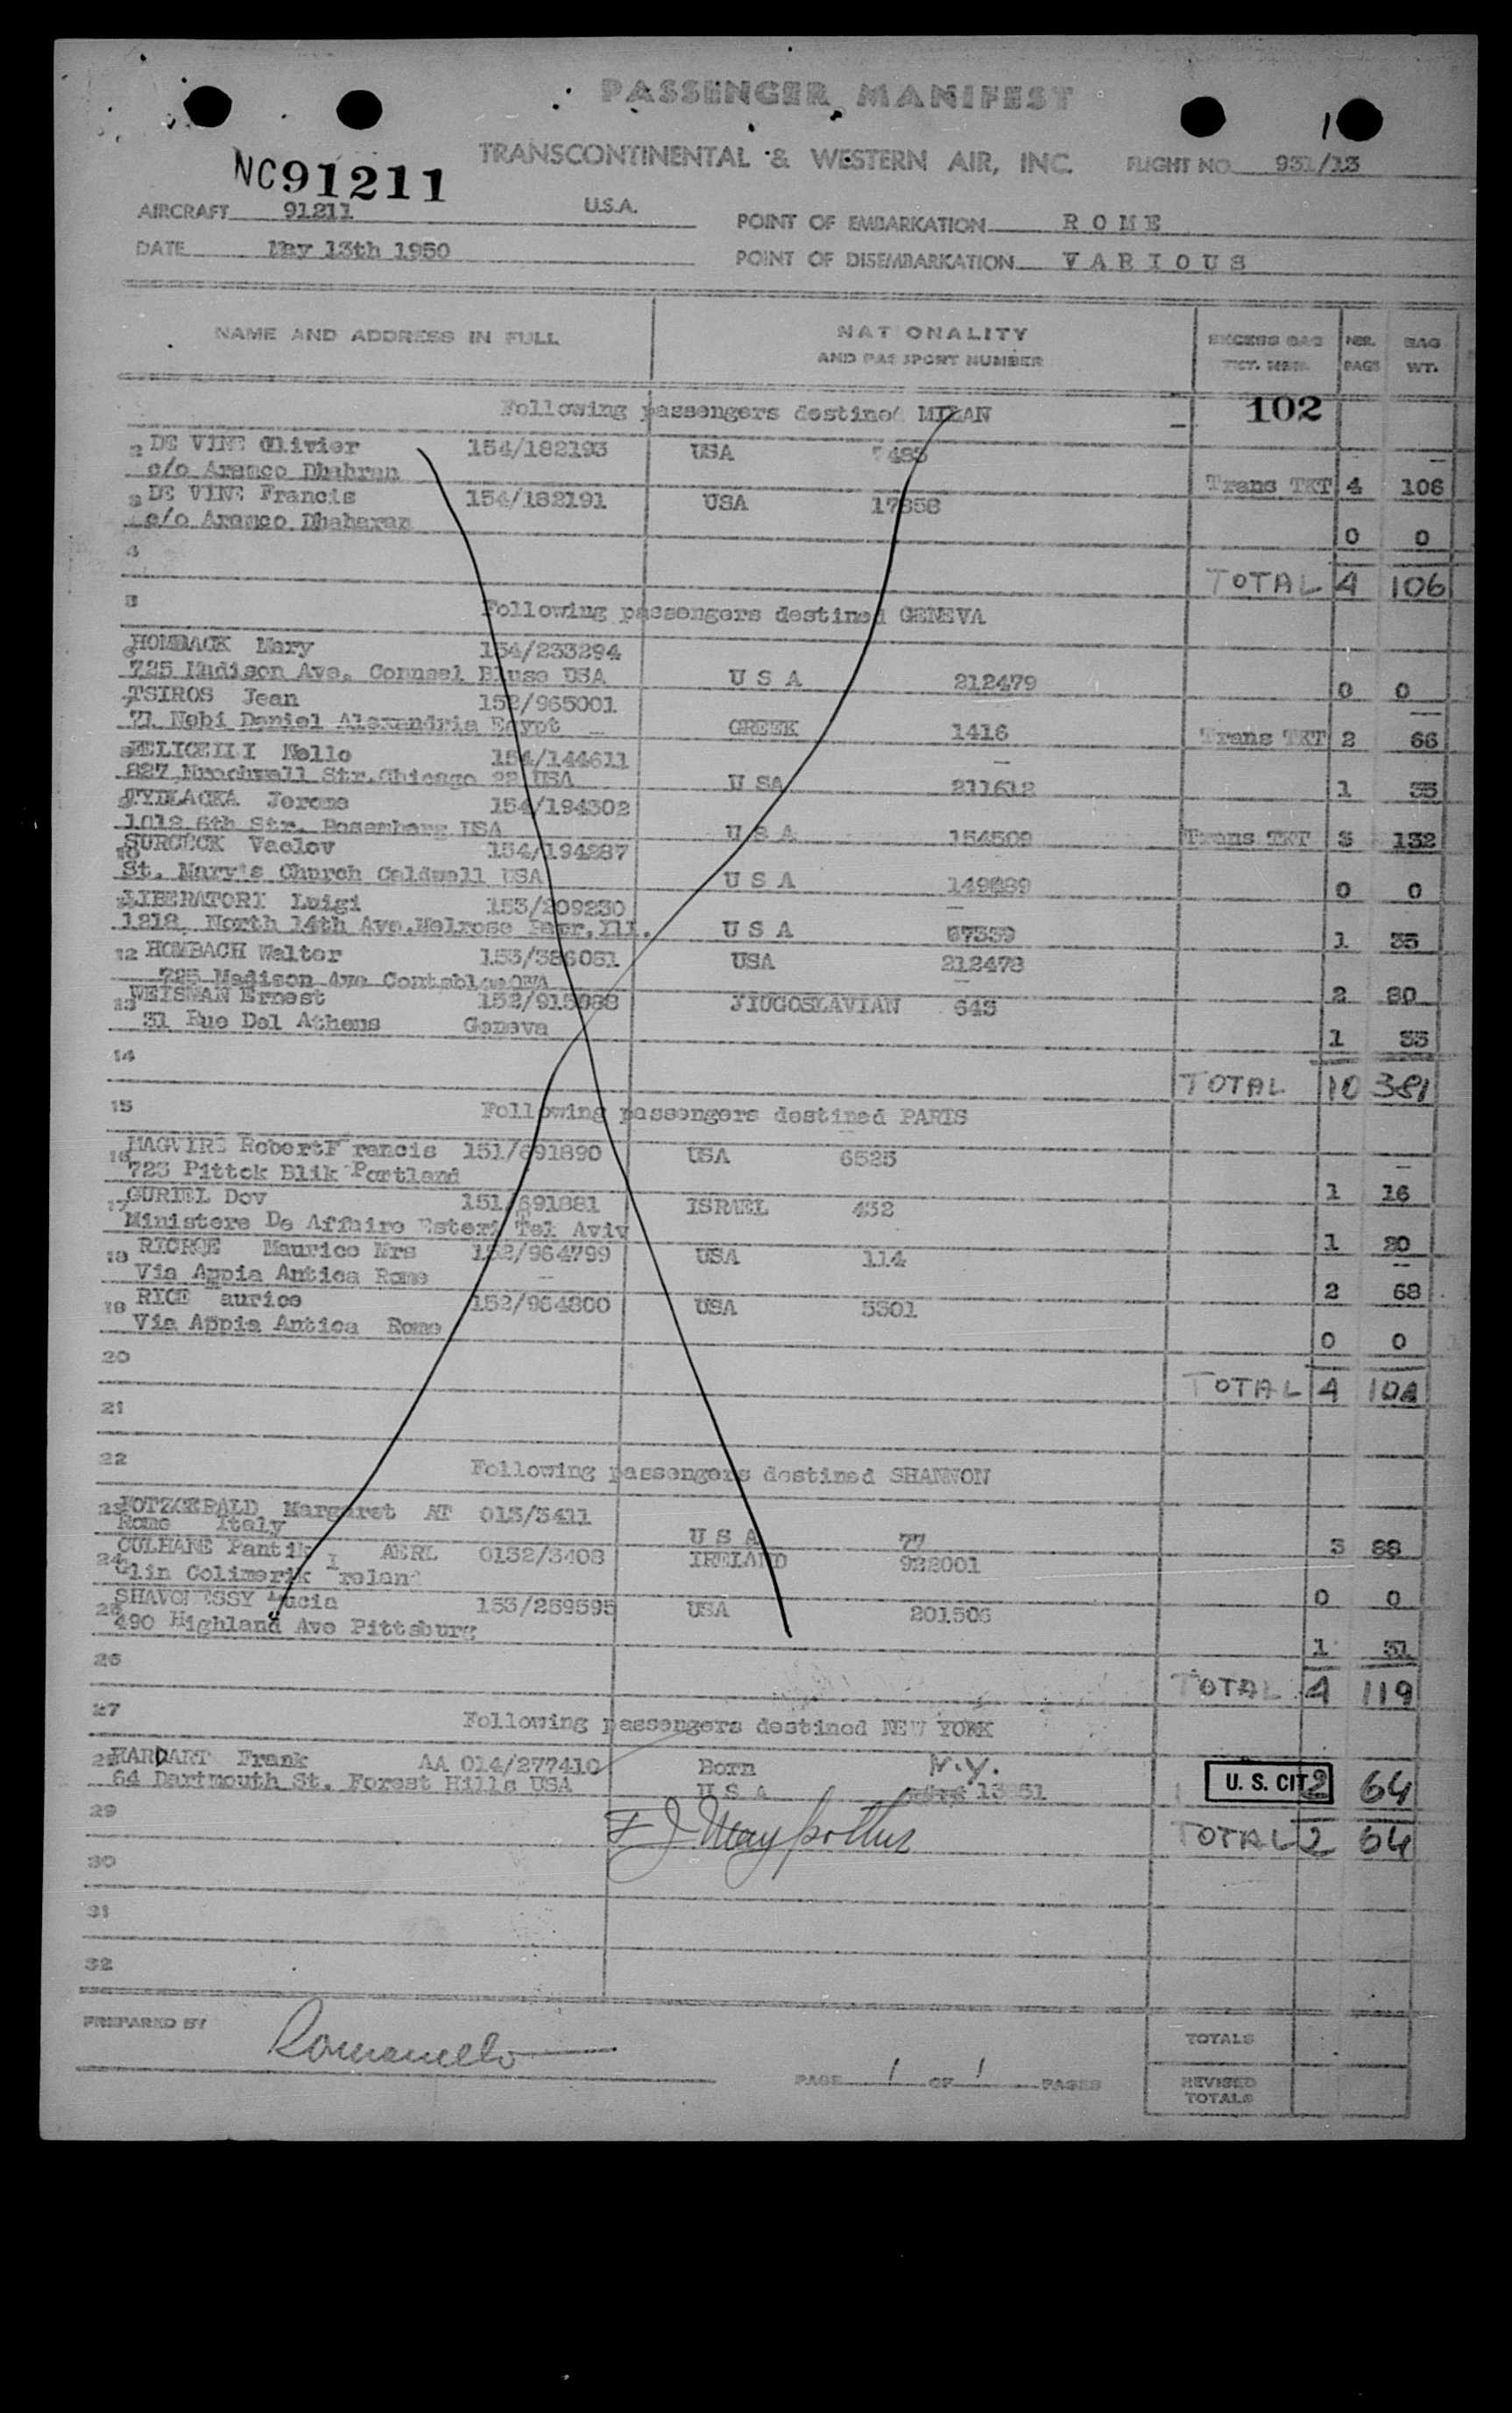 PASSENGER MANIFEST
1
TRANSCONTINENTAL & WESTERN AIR, INC. FLIGHT NO. 931/13
NC91211
AIRCRAFT 91211 U.S.A. POINT OF EMBARKATION ROME
DATE May 13th 1950 POINT OF DISEMBARKATION VARIOUS
NAME AND ADDRESS IN FULL NATIONALITY AND PASSPORT NUMBER EXCESS BAG TICT. NBR. NBR. PAGS BAG WT.
Following passengers destined MILAN 102
2 DE VINE Olivier 154/182193 USA 483
c/o Aramco Dhahran Trans TKT 4 106
3 DE VINE Francis 154/182191 USA 17858
c/o Aramco Dhaharan 0 0
4
TOTAL 4 106
5 Following passengers destined GENEVA
HOMBACK Mary 154/233294
725 Madison Ave. USA U S A 212479 0 0
TSIROS Jean 152/965001
71 Nebi Daniel Alexandria Egypt GREEK 1416 Trans TKT 2 66
Nello 154/144611
827 Str.Chicago 22 USA U SA 211612 1 35
TYDLACKA Jerome 154/194302
1012 6th Str. Rosenberg USA U S A 154509 Trans TKT 3 132
10 SURCECK Vaclov 154/194287
St. Mary's Church Caldwell USA U S A 0 0
LIBERATORI Luigi 153/209230
1212 North 14th Ave.Melrose Ill. U S A 67339 1 35
12 HOMBACH Walter 153/386081 USA 212478
725 Madison Ave 2 80
13 WEISMAN Ernest JIUGOSLAVIAN 645
31 Rue Del Athens Geneva 1 35
14
TOTAL 10 381
15 Following passengers destined PARIS
16 MAGVIRE RobertFrancis 151/691890 USA 6525
723 Pittok Blik Portland 1 16
17 GURIEL Dov 151/691881 ISRAEL 432
Ministere De Affaire Esteri Tel Aviv 1 20
18 Maurice Mrs 152/964799 USA 114
Via Appia Antica Rome 2 68
19 RICE aurice 152/964800 USA 5301
Via Appia Antica Rome 0 0
20
TOTAL 4 104
21
22 Following passengers destined SHANNON
23 Margaret AT 013/3411
Rome Italy U S A 77 3 88
24 CULHANE AERL 0132/3408 IRELAND 922001
Glin Colimerik Ireland 0 0
25 Lucia 153/259595 USA 201506
490 Highland Ave Pittsburg 1 31
26
TOTAL 4 119
27 Following passengers destined NEW YORK
28 HARDART Frank AA 014/277410 Born N.Y.
64 Dartmouth St. Forest Hills USA U S A U. S. CIT 2 64
29
TOTAL 2 64
30
31
32
PREPARED BY Romanello
TOTALS
PAGE 1 OF 1 PAGES
REVISED TOTALS